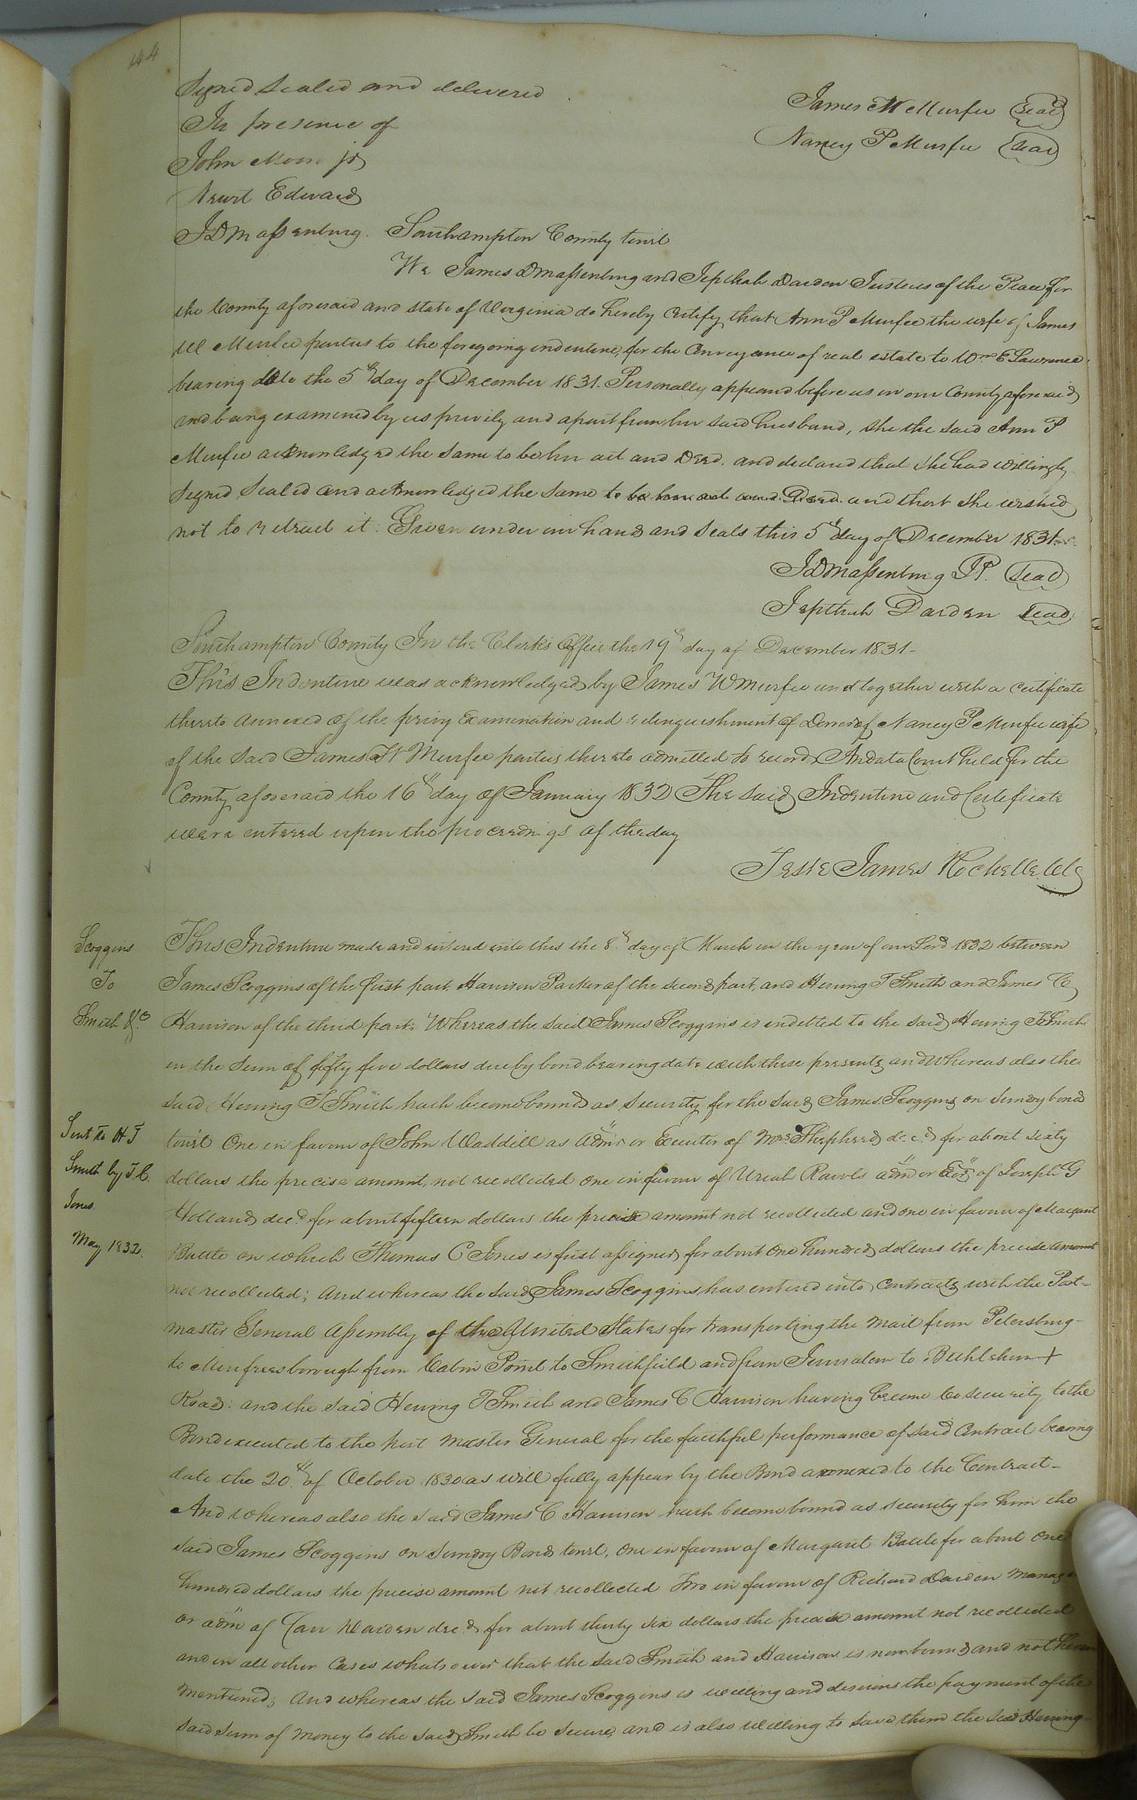 144
Signed Sealed and delivered
James W Murfee Seal
In presence of
Nancy P Murfee Seal
John Moore jr
Newit Edwards
J D Massenburg. Southampton County towit
We James D Massenburg and Jepthah Darden Justices of the Peace for
the County aforesaid and state of Virginia do hereby certify that Ann P Murfee the wife of James
W Murfee parties to the foregoing indenture, for the Conveyance of real estate to Wm E Lawrence
bearing date the 5th day of December 1831. Personally appeared before us in our County aforesaid
and being examined by us privily and apart from her said husband, she the said Ann P
Murfee acknowledged the same to be her act and Deed, and declared that she had willingly
signed Sealed and acknowledged the same to be her act and Deed. and that she wished
not to retract it. Given under our hands and Seals this 5th day of December 1831.
J D Massenburg J P. Seal
Jepthah Darden Seal
Southampton County In the Clerk's Office the 19th day of December 1831-
This Indenture was acknowledged by James W Murfee and together with a certificate
thereto annexed of the privy Examination and relinquishment of Dower of Nancy P Murfee wife
of the said James W Murfee parties thereto admitted to record. And at a Court held for the
County aforesaid the 16th day of January 1832 The said Indenture and Certificate
were entered upon the proceedings of the day
Teste James Rochelle Clk
Scoggins
To
Smith &c
This Indenture made and entered into this the 8th day of March in the year of our Lord 1832 between
James Scoggins of the first part Harrison Parker of the second part, and Herring T Smith and James C
Harrison of the third part. Whereas the said James Scoggins is indebted to the said Herring T Smith
in the sum of fifty five dollars due by bond bearing date with these presents, and whereas also the
said Herring T Smith hath become bound as security for the said James Scoggins on sundry bonds
Sent to H T
Smith by T. C.
Jones
May 1832.
towit One in favour of John Waddill as admr or Executor of Mrs Shepherd decd for about sixty
dollars the precise amount, not recollected one in favour of Uriah Rawls admr or Exr of Joseph G
Holland decd for about fifteen dollars the precise amount not recollected and one in favour of Margaret
Battle on which Thomas C Jones is first assigned, for about One hundred dollars the precise amount
not recollected; And whereas the said James Scoggins has entered into Contracts with the Post-
master General Assembly of the United States for transporting the mail from Petersburg
to Murfreesborough from Cabin Point to Smithfield and from Jerusalem to Bethlehem +
Road: and the said Herring T Smith and James C Harrison having become Co security to the
Bond executed to the post Master General for the faithful performance of said Contract bearing
date the 20th of October 1830 as will fully appear by the Bond annexed to the Contract-
And whereas also the said James C Harrison hath become bound as security for him the
said James Scoggins on sundry Bonds towit, One in favour of Margaret Battle for about One
hundred dollars the precise amount not recollected Two in favour of Richard Darden manager
or admr of Carr Darden decd for about thirty six dollars the precise amount not recollected
and in all other Cases whatsoever that the said Smith and Harrison is now bound and not herein
mentioned; And whereas the said James Scoggins is willing and desirous the payment of the
said sum of money to the said Smith be Secured, and is also willing to save them the said Herring